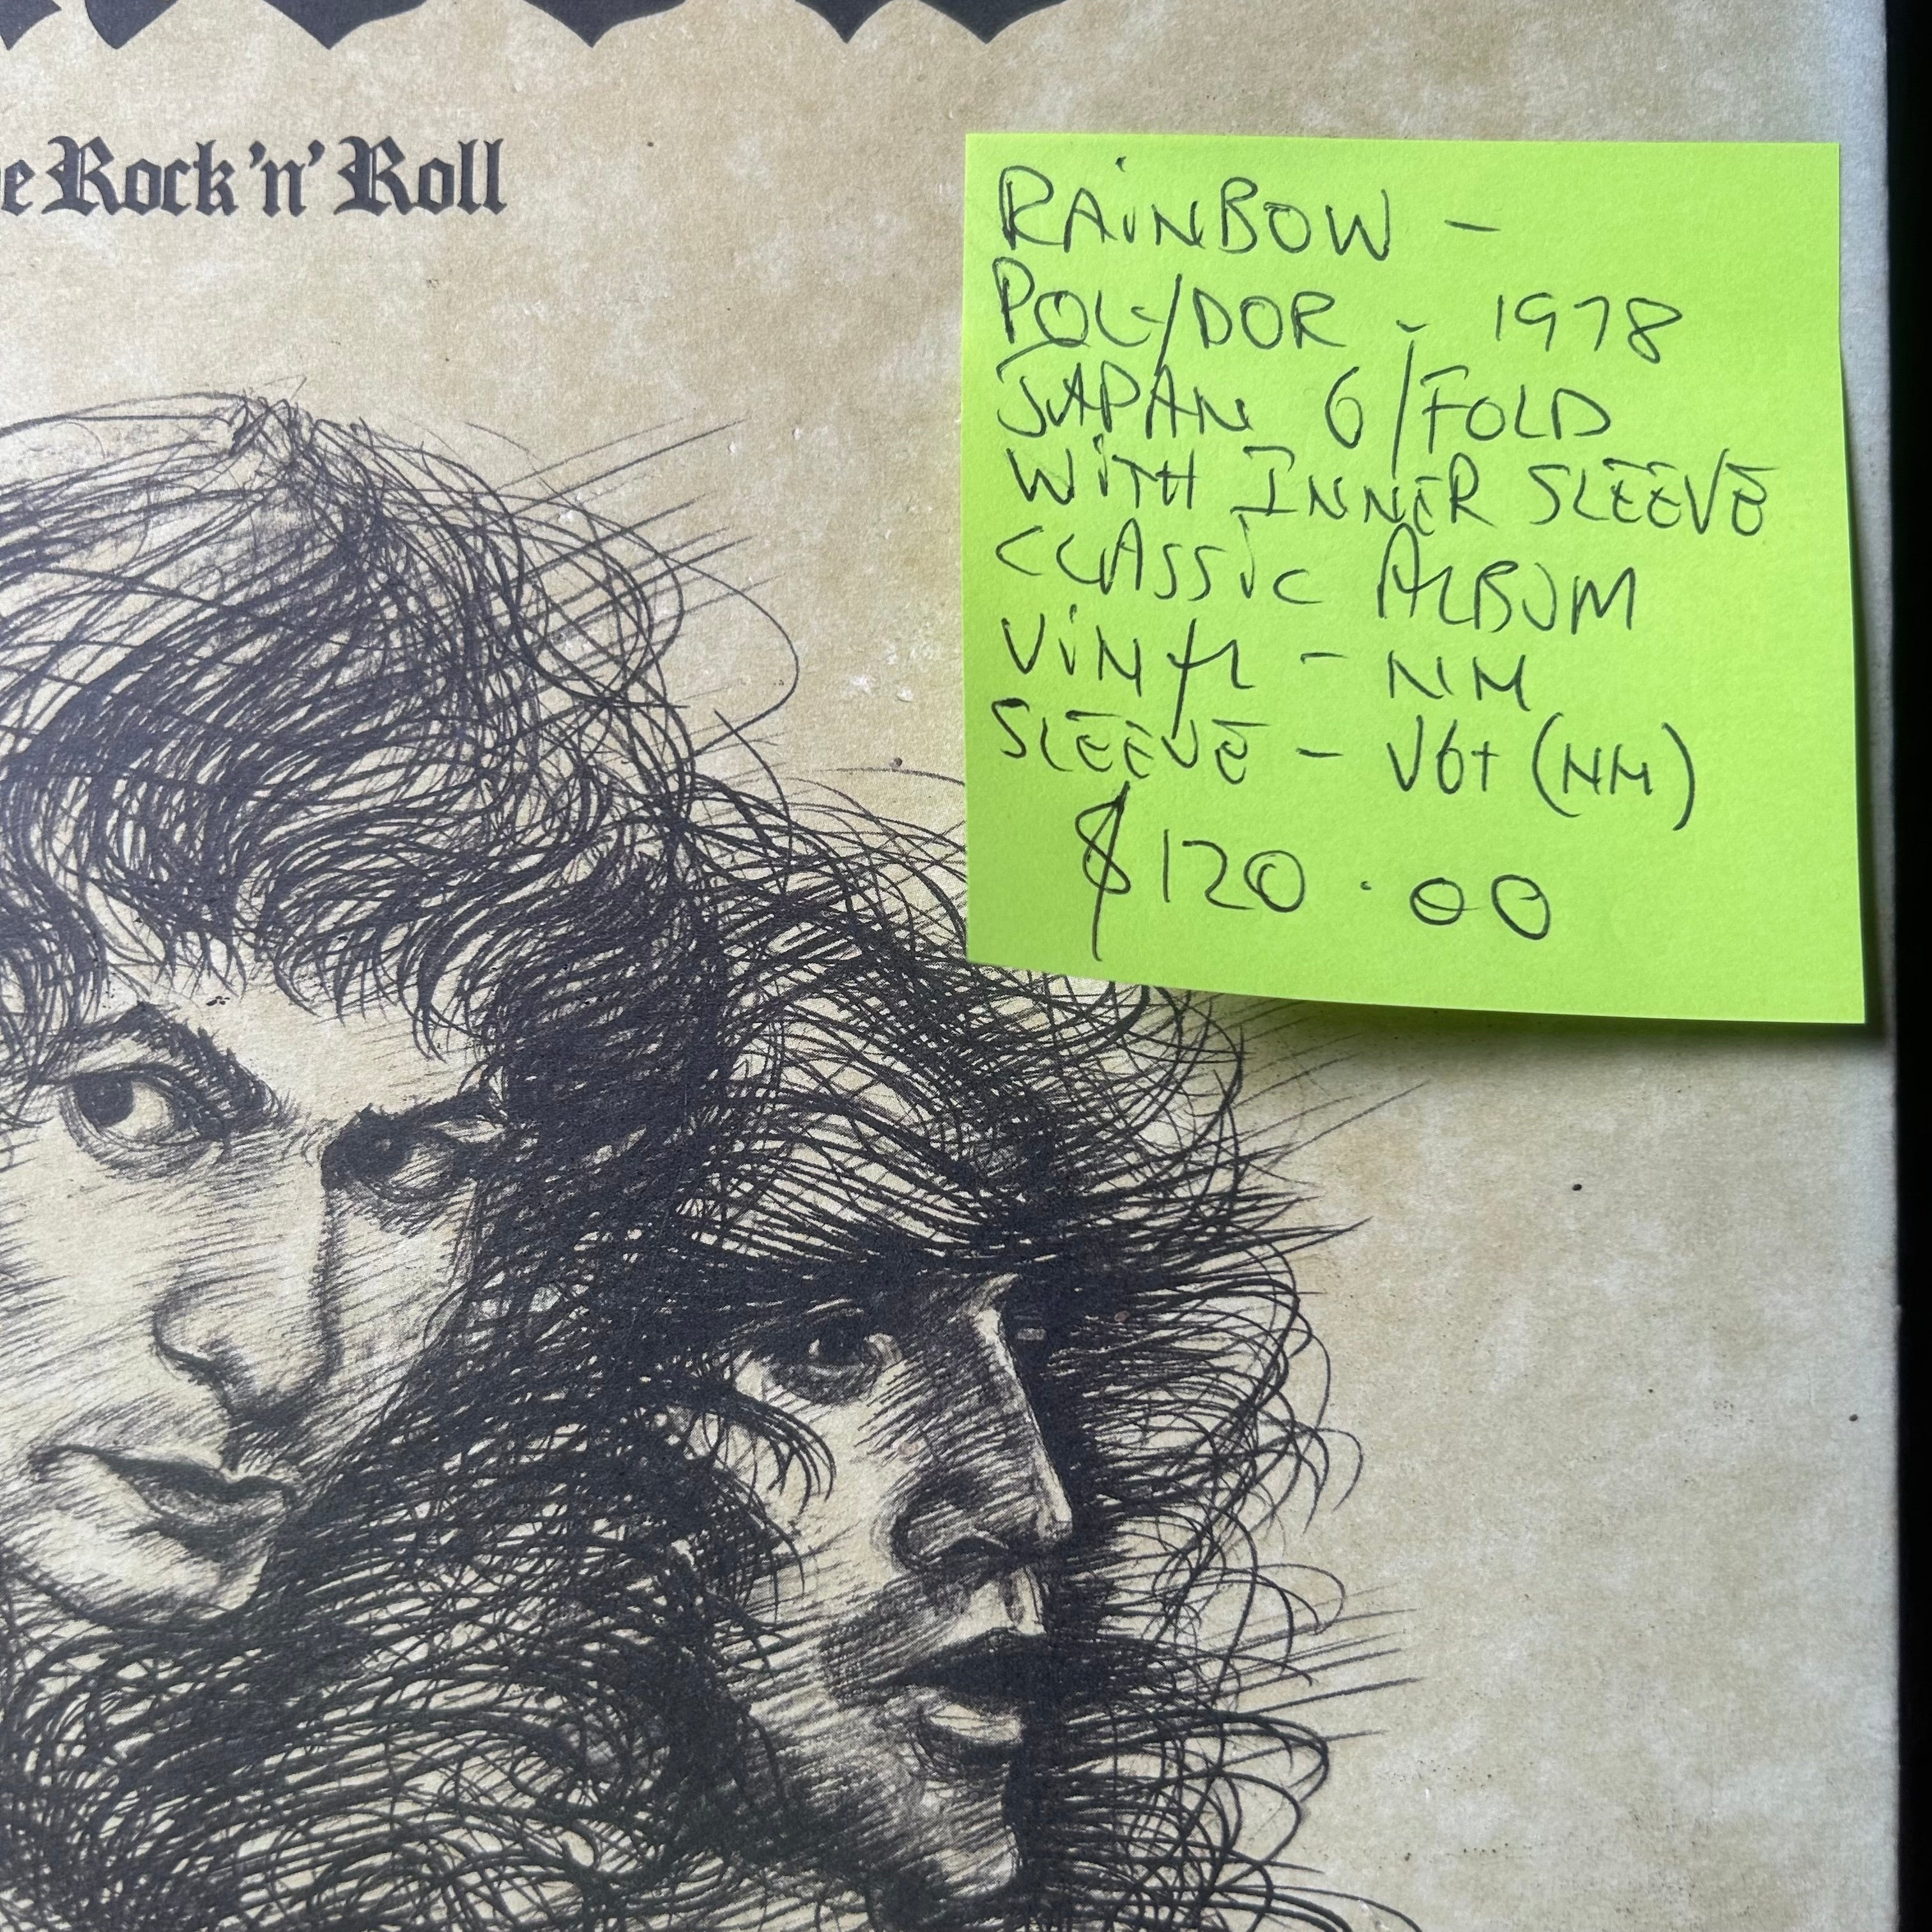 e Rock 'n' Roll
RAINBOW -
POLYDOR - 1978
JAPAN G/FOLD
WITH INNER SLEEVE
CLASSIC ALBUM
VINYL - NM
SLEEVE - VG+ (NM)
$120.00